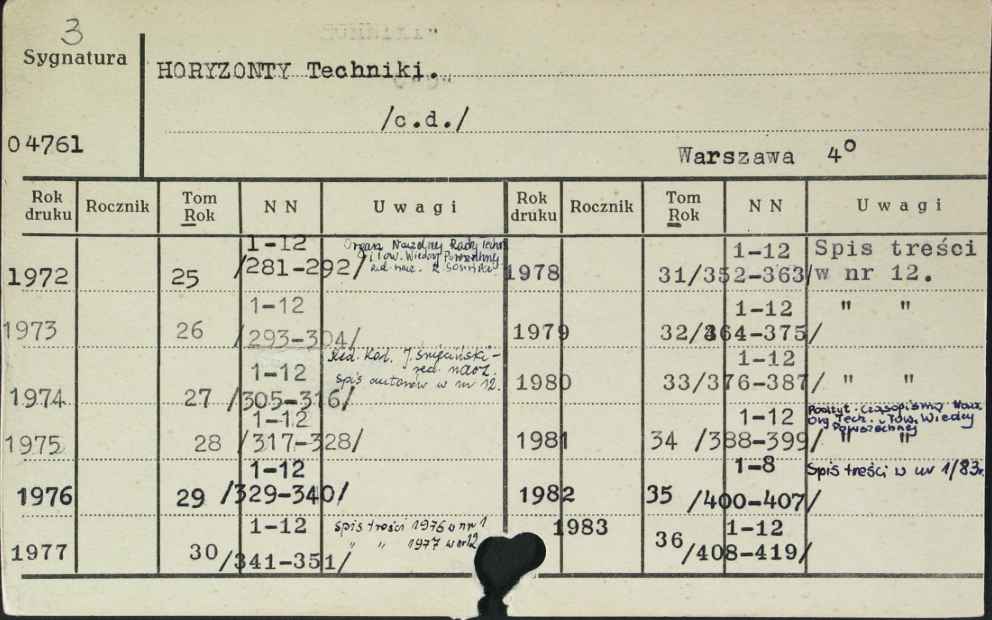 3
Sygnatura
HORYZONTY Techniki.
/c.d./
04761
Warszawa 4º
Rok druku Rocznik Tom Rok N N U w a g i Rok druku Rocznik Tom Rok N N U w a g i
1972 25 1-12 /281-292/ Organ Naczelnej Rady Techn.
i Tow. Wiedzy Powszechnej
Red. nacz.
1973 26 1-12 /293-304/
1974 27 1-12 /305-316/ Red. Kol. J. Śnieciński -
red. nacz.
spis autorów w nr 12.
1975 28 1-12 /317-328/
1976 29 1-12 /329-340/
1977 30 1-12 /341-351/ spis treści 1976 w nr 1
" " 1977 w nr 12
1978 31 1-12 /352-363/ Spis treści
w nr 12.
1979 32 1-12 /364-375/ " "
1980 33 1-12 /376-387/ " "
1981 34 1-12 /388-399/ Podtyt. Czasopismo Nacz.
Org. Tech. i Tow. Wiedzy
Powszechnej
" "
1982 35 1-8 /400-407/ Spis treści w nr 1/83r.
1983 36 1-12 /408-419/